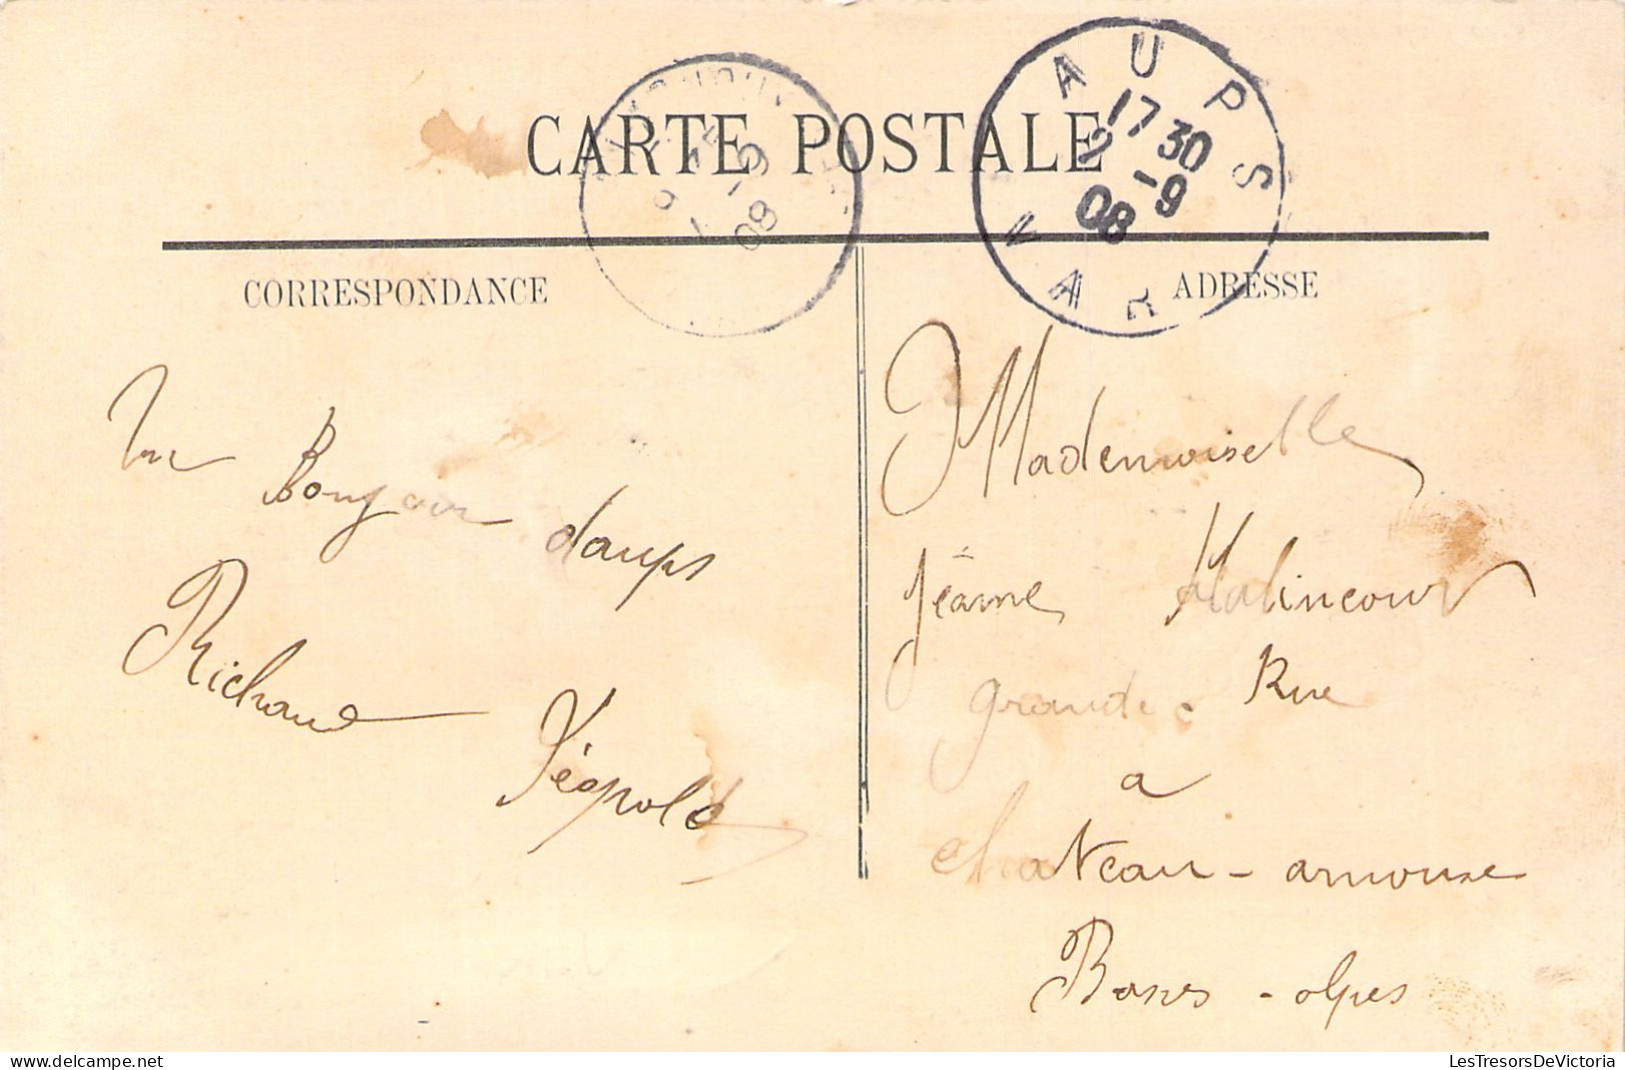 CARTE POSTALE
AUPS
17 30
2 -9
08
VAR
9 -9
08
CORRESPONDANCE
ADRESSE
Un Bonjour daups
Richaud
Léopold
Mademoiselle
Jéanne Malincour
grande. Rue
a
chateau-arnouse
Basses-alpes
www.delcampe.net
LesTresorsDeVictoria